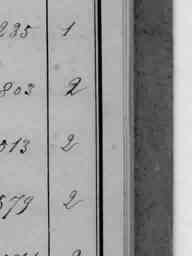 235 1
803 2
513 2
579 2